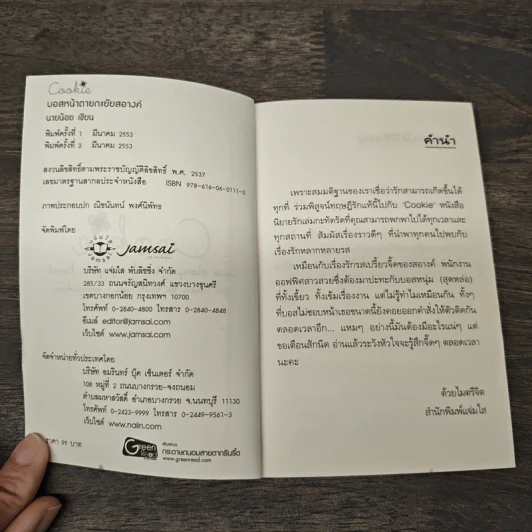 Cookie
บอสหน้าตายกะยัยสอางค์
นายน้อย เขียน
พิมพ์ครั้งที่ 1 มีนาคม 2553
พิมพ์ครั้งที่ 2 มีนาคม 2553
สงวนลิขสิทธิ์ตามพระราชบัญญัติลิขสิทธิ์ พ.ศ. 2537
เลขมาตรฐานสากลประจำหนังสือ ISBN 978-616-06-0111-5
ภาพประกอบปก ณิชนันทน์ พงศ์นิพัทธ
จัดพิมพ์โดย
jamsai
บริษัท แจ่มใส พับลิชชิ่ง จำกัด
285/33 ถนนจรัญสนิทวงศ์ แขวงบางขุนศรี
เขตบางกอกน้อย กรุงเทพฯ 10700
โทรศัพท์ 0-2840-4800 โทรสาร 0-2840-4848
อีเมล์ editor@jamsai.com
เว็บไซต์ www.jamsai.com
จัดจำหน่ายทั่วประเทศโดย
บริษัท อมรินทร์ บุ๊ค เซ็นเตอร์ จำกัด
108 หมู่ที่ 2 ถนนบางกรวย-จงถนอม
ตำบลมหาสวัสดิ์ อำเภอบางกรวย จ.นนทบุรี 11130
โทรศัพท์ 0-2423-9999 โทรสาร 0-2449-9561-3
เว็บไซต์ www.naiin.com
ราคา 99 บาท
Green Read
กระดาษถนอมสายตากรีนรี้ด
www.greenread.com
คำนำ
เพราะสมมติฐานของเราเชื่อว่ารักสามารถเกิดขึ้นได้
ทุกที่ ร่วมพิสูจน์ทฤษฎีรักแท้นี้ไปกับ 'Cookie' หนังสือ
นิยายรักเล่มกะทัดรัดที่คุณสามารถพกพาไปได้ทุกเวลาและ
ทุกสถานที่ สัมผัสเรื่องราวดีๆ ที่นำพาทุกคนไปพบกับ
เรื่องรักหลากหลายรส
เหมือนกับเรื่องรักรสเปรี้ยวจี๊ดของสอางค์ พนักงาน
ออฟฟิศสาวสวยซึ่งต้องมาปะทะกับบอสหนุ่ม (สุดหล่อ)
ที่ทั้งเขี้ยว ทั้งเข้มเรื่องงาน แต่ไม่รู้ทำไมเหมือนกัน ทั้งๆ
ที่บอสไม่ชอบหน้าเธอขนาดนี้ยังคอยออกคำสั่งให้ตัวติดกัน
ตลอดเวลาอีก... แหมๆ อย่างนี้มันต้องมีอะไรแน่ๆ แต่
ขอเตือนสักนิด อ่านแล้วระวังหัวใจจะรู้สึกจี๊ดๆ ตลอดเวลา
นะคะ
ด้วยไมตรีจิต
สำนักพิมพ์แจ่มใส